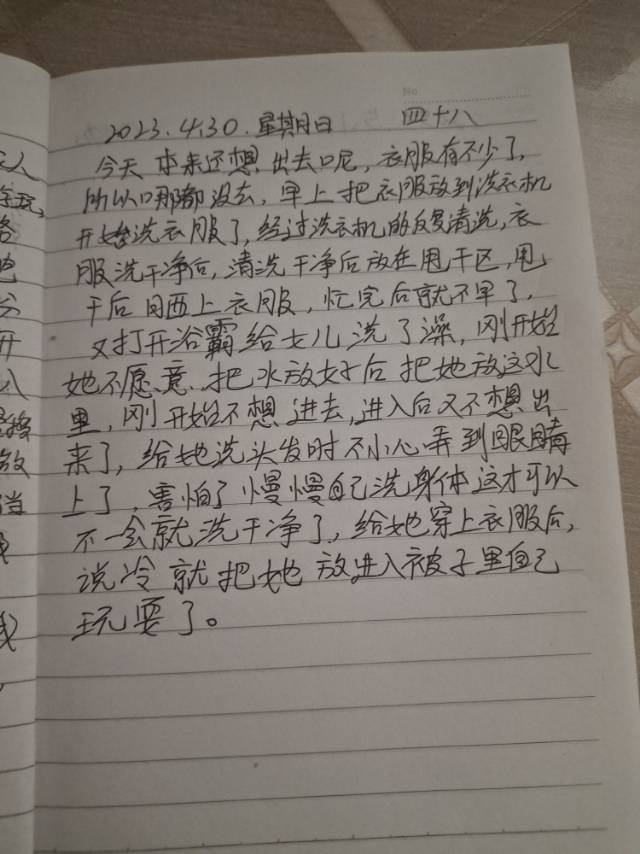 2023.4.30.星期日 四十八
今天本来还想出去呢,衣服有不少了,
所以哪都没去,早上把衣服放到洗衣机
开始洗衣服了,经过洗衣机的反复清洗,衣
服洗干净后,清洗干净后放在甩干区,甩
干后晒上衣服,忙完后就不早了,
又打开浴霸给女儿洗了澡,刚开始
她不愿意,把水放好后把她放这水
里,刚开始不想进去,进入后又不想出
来了,给她洗头发时不小心弄到眼睛
上了,害怕了慢慢自己洗身体这才可以
不一会就洗干净了,给她穿上衣服后,
说冷就把她放进入被子里自己
玩耍了。